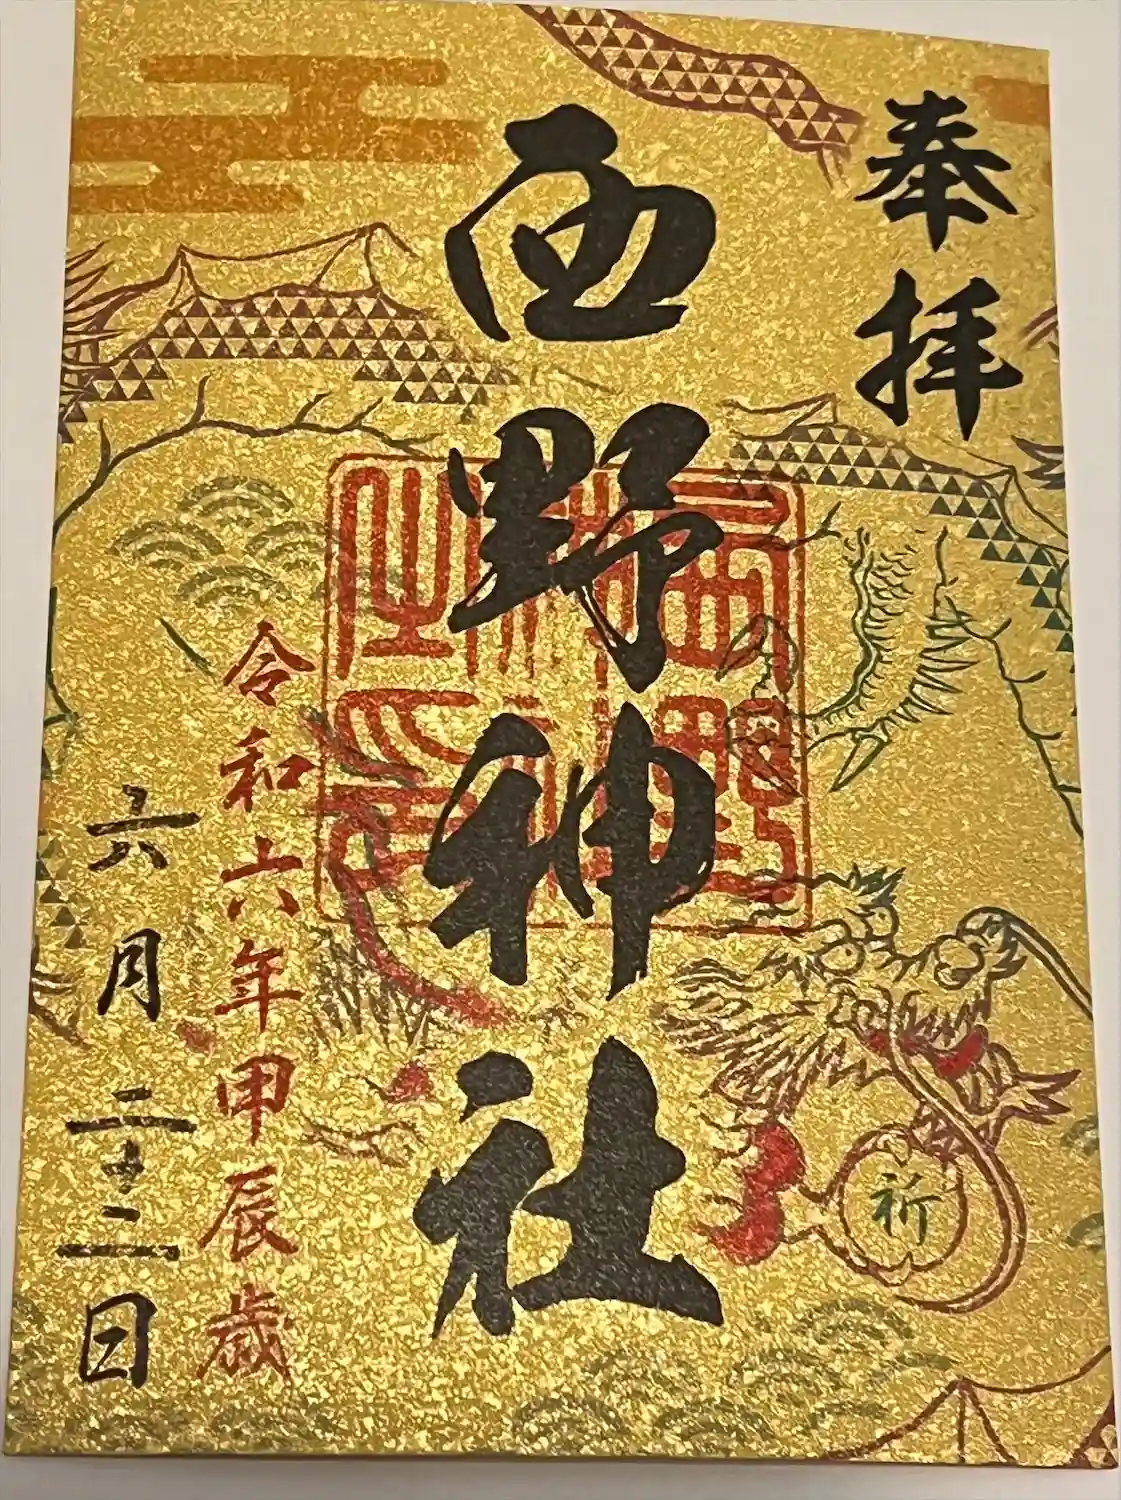 奉拝
西野神社
西野神社之印
祈
令和六年甲辰歳
六月二十二日